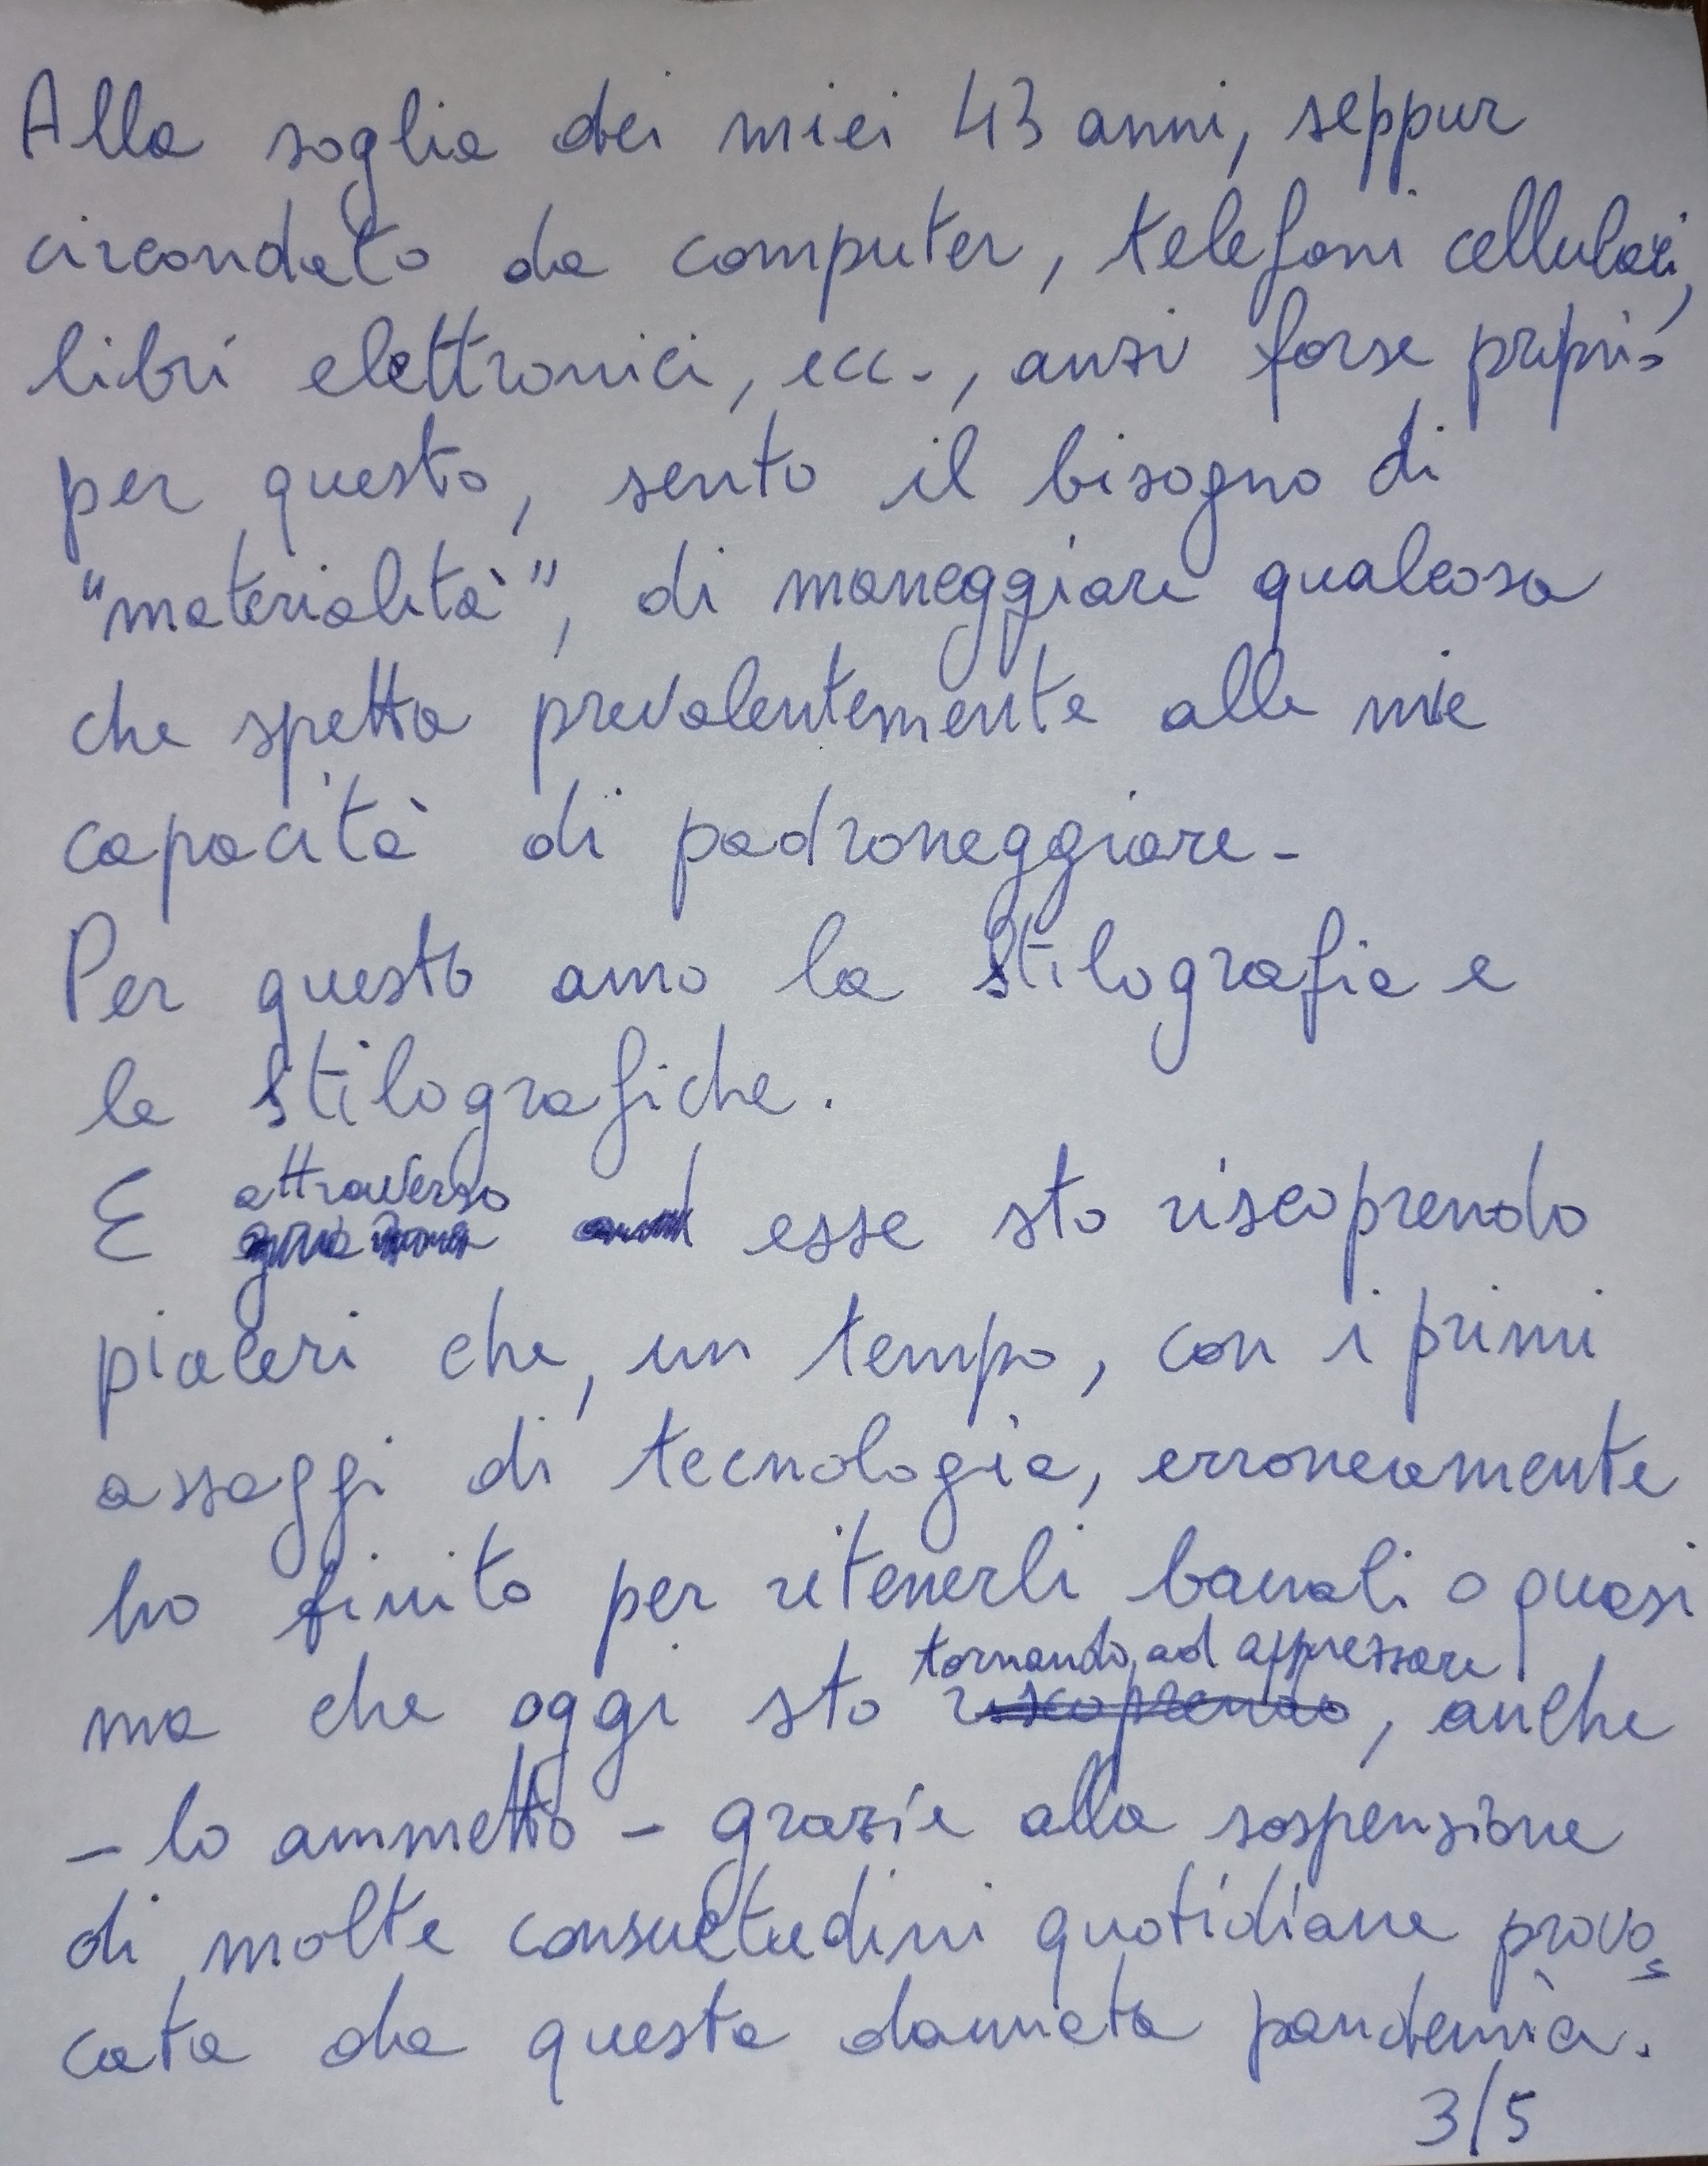 Alla soglia dei miei 43 anni, seppur
circondato da computer, telefoni cellulari,
libri elettronici, ecc., anzi forse proprio
per questo, sento il bisogno di
"materialità", di maneggiare qualcosa
che spetta prevalentemente alle mie
capacità di padroneggiare.
Per questo amo la stilografia e
le stilografiche.
attraverso
E esse sto riscoprendo
piaceri che, un tempo, con i primi
assaggi di tecnologia, erroneamente
ho finito per ritenerli banali o quasi
tornando ad apprezzare
ma che oggi sto riscoprendo, anche
- lo ammetto - grazie alla sospensione
di molte consuetudini quotidiane provo=
cata da questa dannata pandemia.
3/5